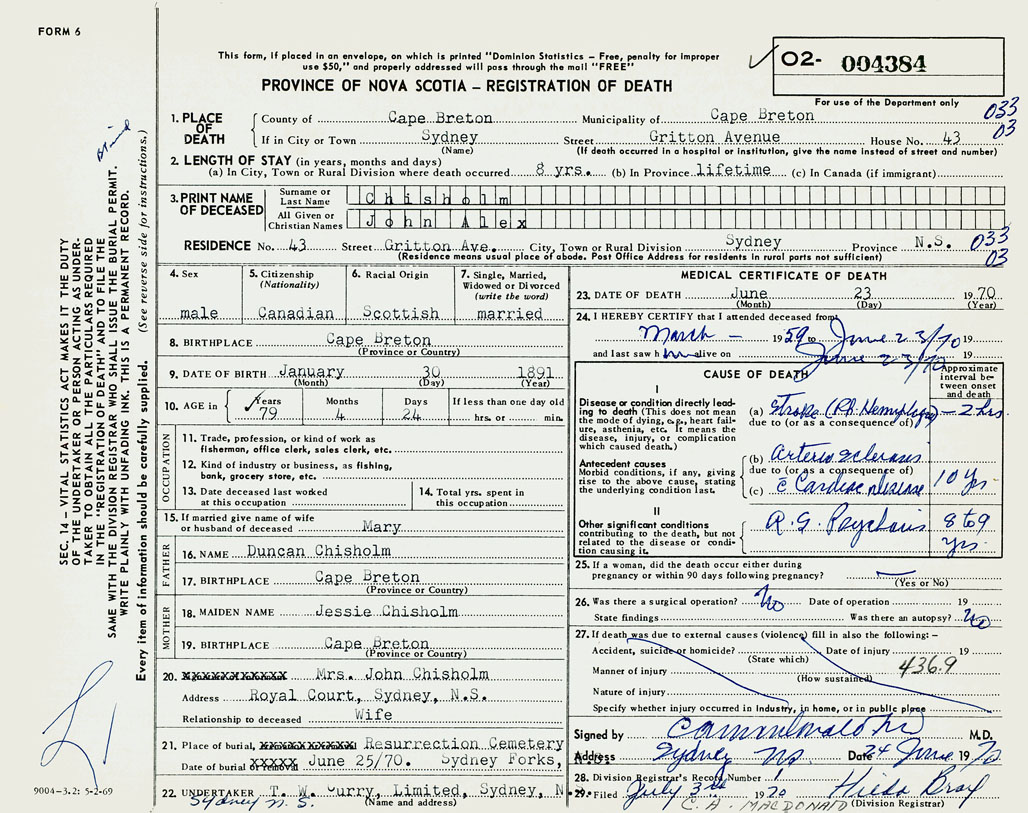 FORM 6
This form, if placed in an envelope, on which is printed "Dominion Statistics – Free, penalty for improper
use $50," and properly addressed will pass through the mail "FREE"
PROVINCE OF NOVA SCOTIA – REGISTRATION OF DEATH
02- 004384
For use of the Department only
1. PLACE OF DEATH County of Cape Breton Municipality of Cape Breton 033
If in City or Town Sydney Street Gritton Avenue House No. 43 03
(Name) (If death occurred in a hospital or institution, give the name instead of street and number)
2. LENGTH OF STAY (in years, months and days)
(a) In City, Town or Rural Division where death occurred 8 yrs. (b) In Province lifetime (c) In Canada (if immigrant)
3. PRINT NAME OF DECEASED Surname or Last Name Chisholm
All Given or Christian Names John Alex
RESIDENCE No. 43 Street Gritton Ave. City, Town or Rural Division Sydney Province N.S. 033
(Residence means usual place of abode. Post Office Address for residents in rural parts not sufficient) 03
4. Sex male
5. Citizenship (Nationality) Canadian
6. Racial Origin Scottish
7. Single, Married, Widowed or Divorced (write the word) married
8. BIRTHPLACE Cape Breton
(Province or Country)
9. DATE OF BIRTH January 30 1891
(Month) (Day) (Year)
10. AGE in Years Months Days If less than one day old
79 4 24 hrs. or min.
OCCUPATION
11. Trade, profession, or kind of work as
fisherman, office clerk, sales clerk, etc.
12. Kind of industry or business, as fishing,
bank, grocery store, etc.
13. Date deceased last worked
at this occupation
14. Total yrs. spent in
this occupation
15. If married give name of wife
or husband of deceased Mary
FATHER
16. NAME Duncan Chisholm
17. BIRTHPLACE Cape Breton
(Province or Country)
MOTHER
18. MAIDEN NAME Jessie Chisholm
19. BIRTHPLACE Cape Breton
(Province or Country)
20. Mrs. John Chisholm
Address Royal Court, Sydney, N.S.
Relationship to deceased Wife
21. Place of burial, Resurrection Cemetery
Date of burial June 25/70. Sydney Forks,
22. UNDERTAKER T. W. Curry, Limited, Sydney, N.S.
(Name and address)
Sydney N.S.
MEDICAL CERTIFICATE OF DEATH
23. DATE OF DEATH June 23 1970
(Month) (Day) (Year)
24. I HEREBY CERTIFY that I attended deceased from
March – 1959 to June 23/70 19
and last saw him alive on June 23/70 19
CAUSE OF DEATH
Approximate interval between onset and death
I
Disease or condition directly leading
to death (This does not mean
the mode of dying, e.g., heart failure,
asthenia, etc. It means the
disease, injury, or complication
which caused death.)
(a) Stroke (Rt. Hemiplegia) – 2 hrs.
due to (or as a consequence of)
Antecedent causes
Morbid conditions, if any, giving
rise to the above cause, stating
the underlying condition last.
(b) Arteriosclerosis
due to (or as a consequence of)
(c) c̄ Cardiac Disease 10 yrs.
II
Other significant conditions
contributing to the death, but not
related to the disease or condition
causing it.
Psychosis 8 to 9 yrs.
25. If a woman, did the death occur either during
pregnancy or within 90 days following pregnancy?
(Yes or No)
26. Was there a surgical operation? No Date of operation 19
State findings Was there an autopsy? No
27. If death was due to external causes (violence) fill in also the following:–
Accident, suicide or homicide? Date of injury 19
(State which)
Manner of injury 436.9
(How sustained)
Nature of injury
Specify whether injury occurred in Industry, in home, or in public place
Signed by M.D.
Address Sydney NS Date 24 June 1970
28. Division Registrar's Record Number 1
29. Filed July 3rd 1970 Hilda
C. A. MACDONALD (Division Registrar)
SEC. 14 – VITAL STATISTICS ACT MAKES IT THE DUTY
OF THE UNDERTAKER OR PERSON ACTING AS UNDERTAKER
TO OBTAIN ALL THE PARTICULARS REQUIRED
IN THE "REGISTRATION OF DEATH" AND TO FILE THE
SAME WITH THE DIVISION REGISTRAR WHO SHALL ISSUE THE BURIAL PERMIT.
WRITE PLAINLY WITH UNFADING INK. THIS IS A PERMANENT RECORD.
Every item of information should be carefully supplied. (See reverse side for instructions.)
9004-3.2: 5-2-69